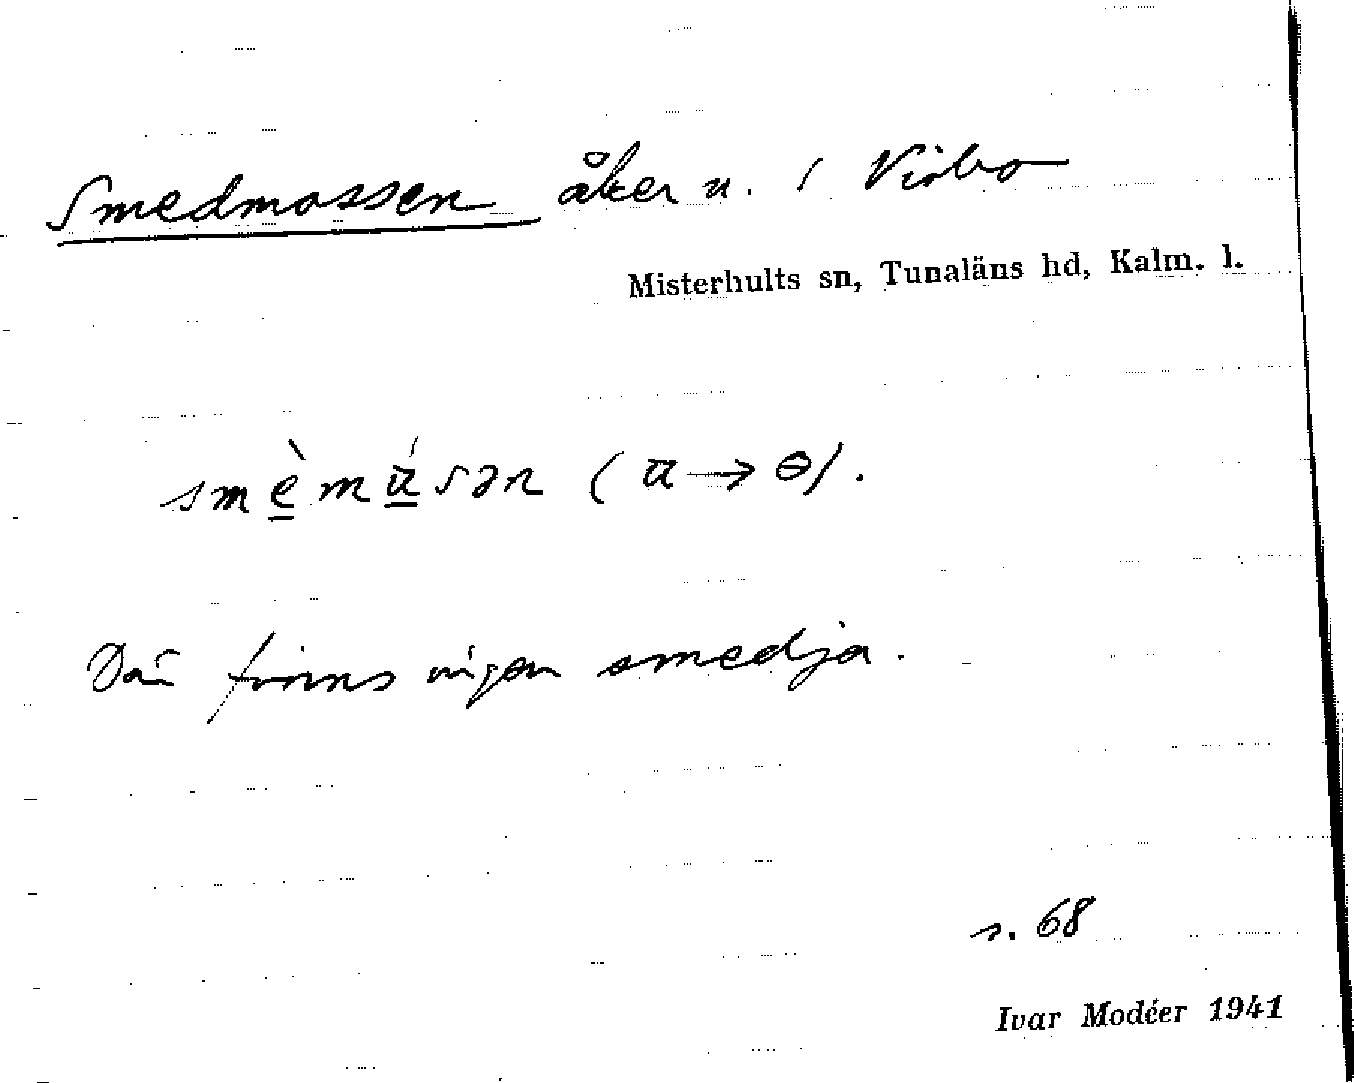 Smedmossen åker n. i Virbo
Misterhults sn, Tunaläns hd, Kalm. l.
smè̱mú̱sən (u → ɵ).
Där finns ingen smedja.
s. 68
Ivar Modéer 1941